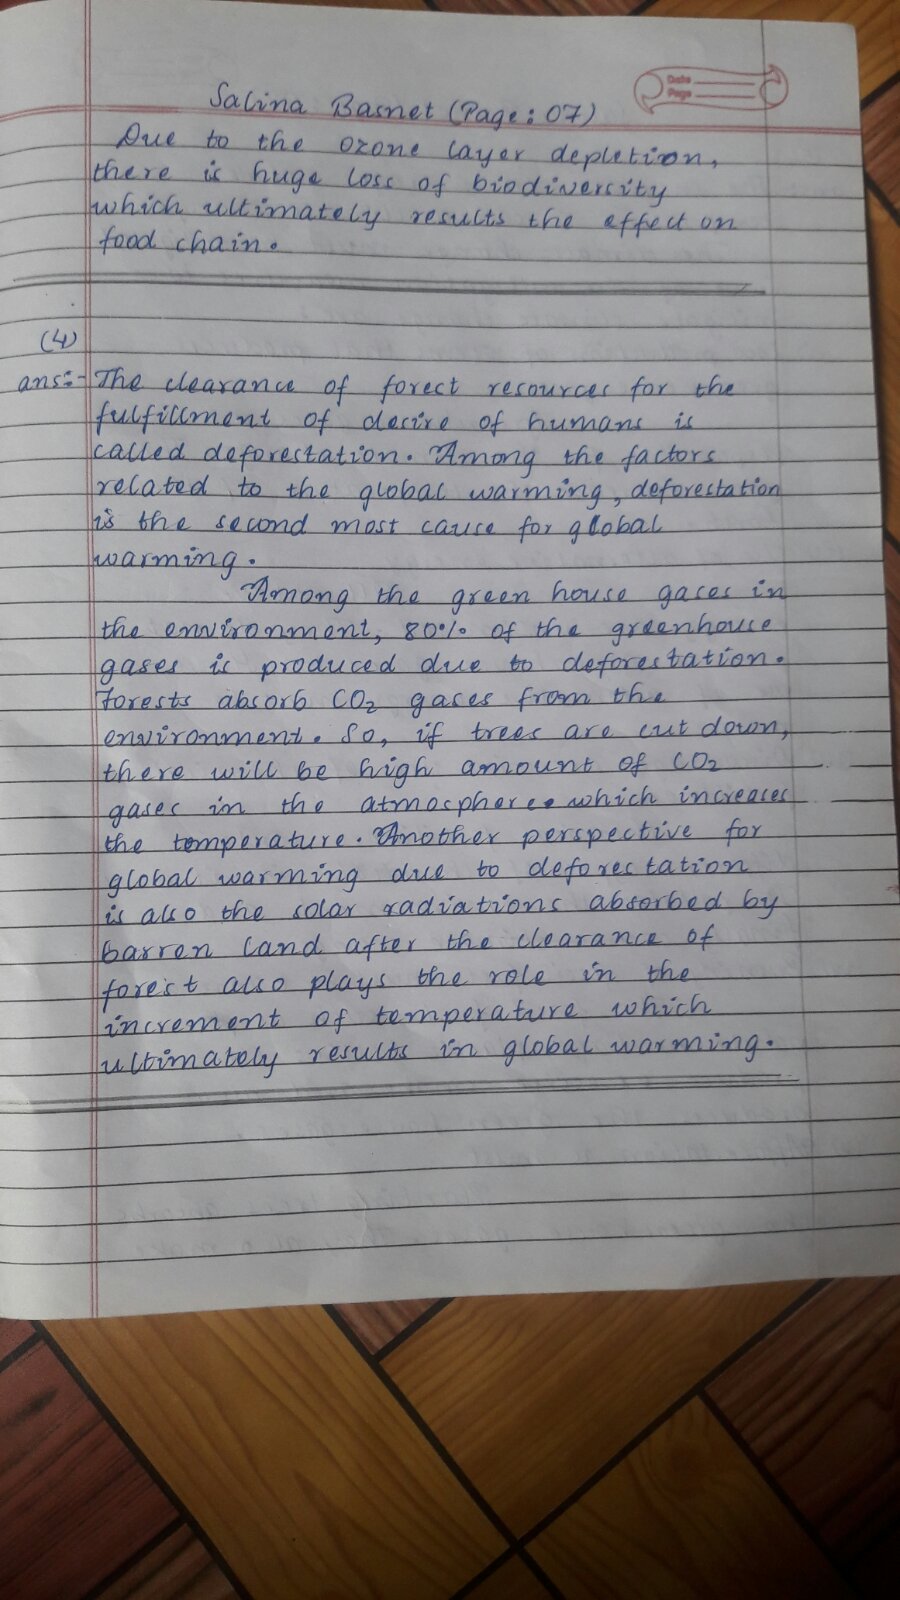 Date
Page
Salina Basnet (Page: 07)
Due to the ozone layer depletion,
there is huge loss of biodiversity
which ultimately results the effect on
food chain.
(4)
ans:- The clearance of forest resources for the
fulfillment of desire of humans is
called deforestation. Among the factors
related to the global warming, deforestation
is the second most cause for global
warming.
Among the green house gases in
the environment, 80% of the greenhouse
gases is produced due to deforestation.
Forests absorb CO₂ gases from the
environment. So, if trees are cut down,
there will be high amount of CO₂
gases in the atmosphere. which increases
the temperature. Another perspective for
global warming due to deforestation
is also the solar radiations absorbed by
barren land after the clearance of
forest also plays the role in the
increment of temperature which
ultimately results in global warming.